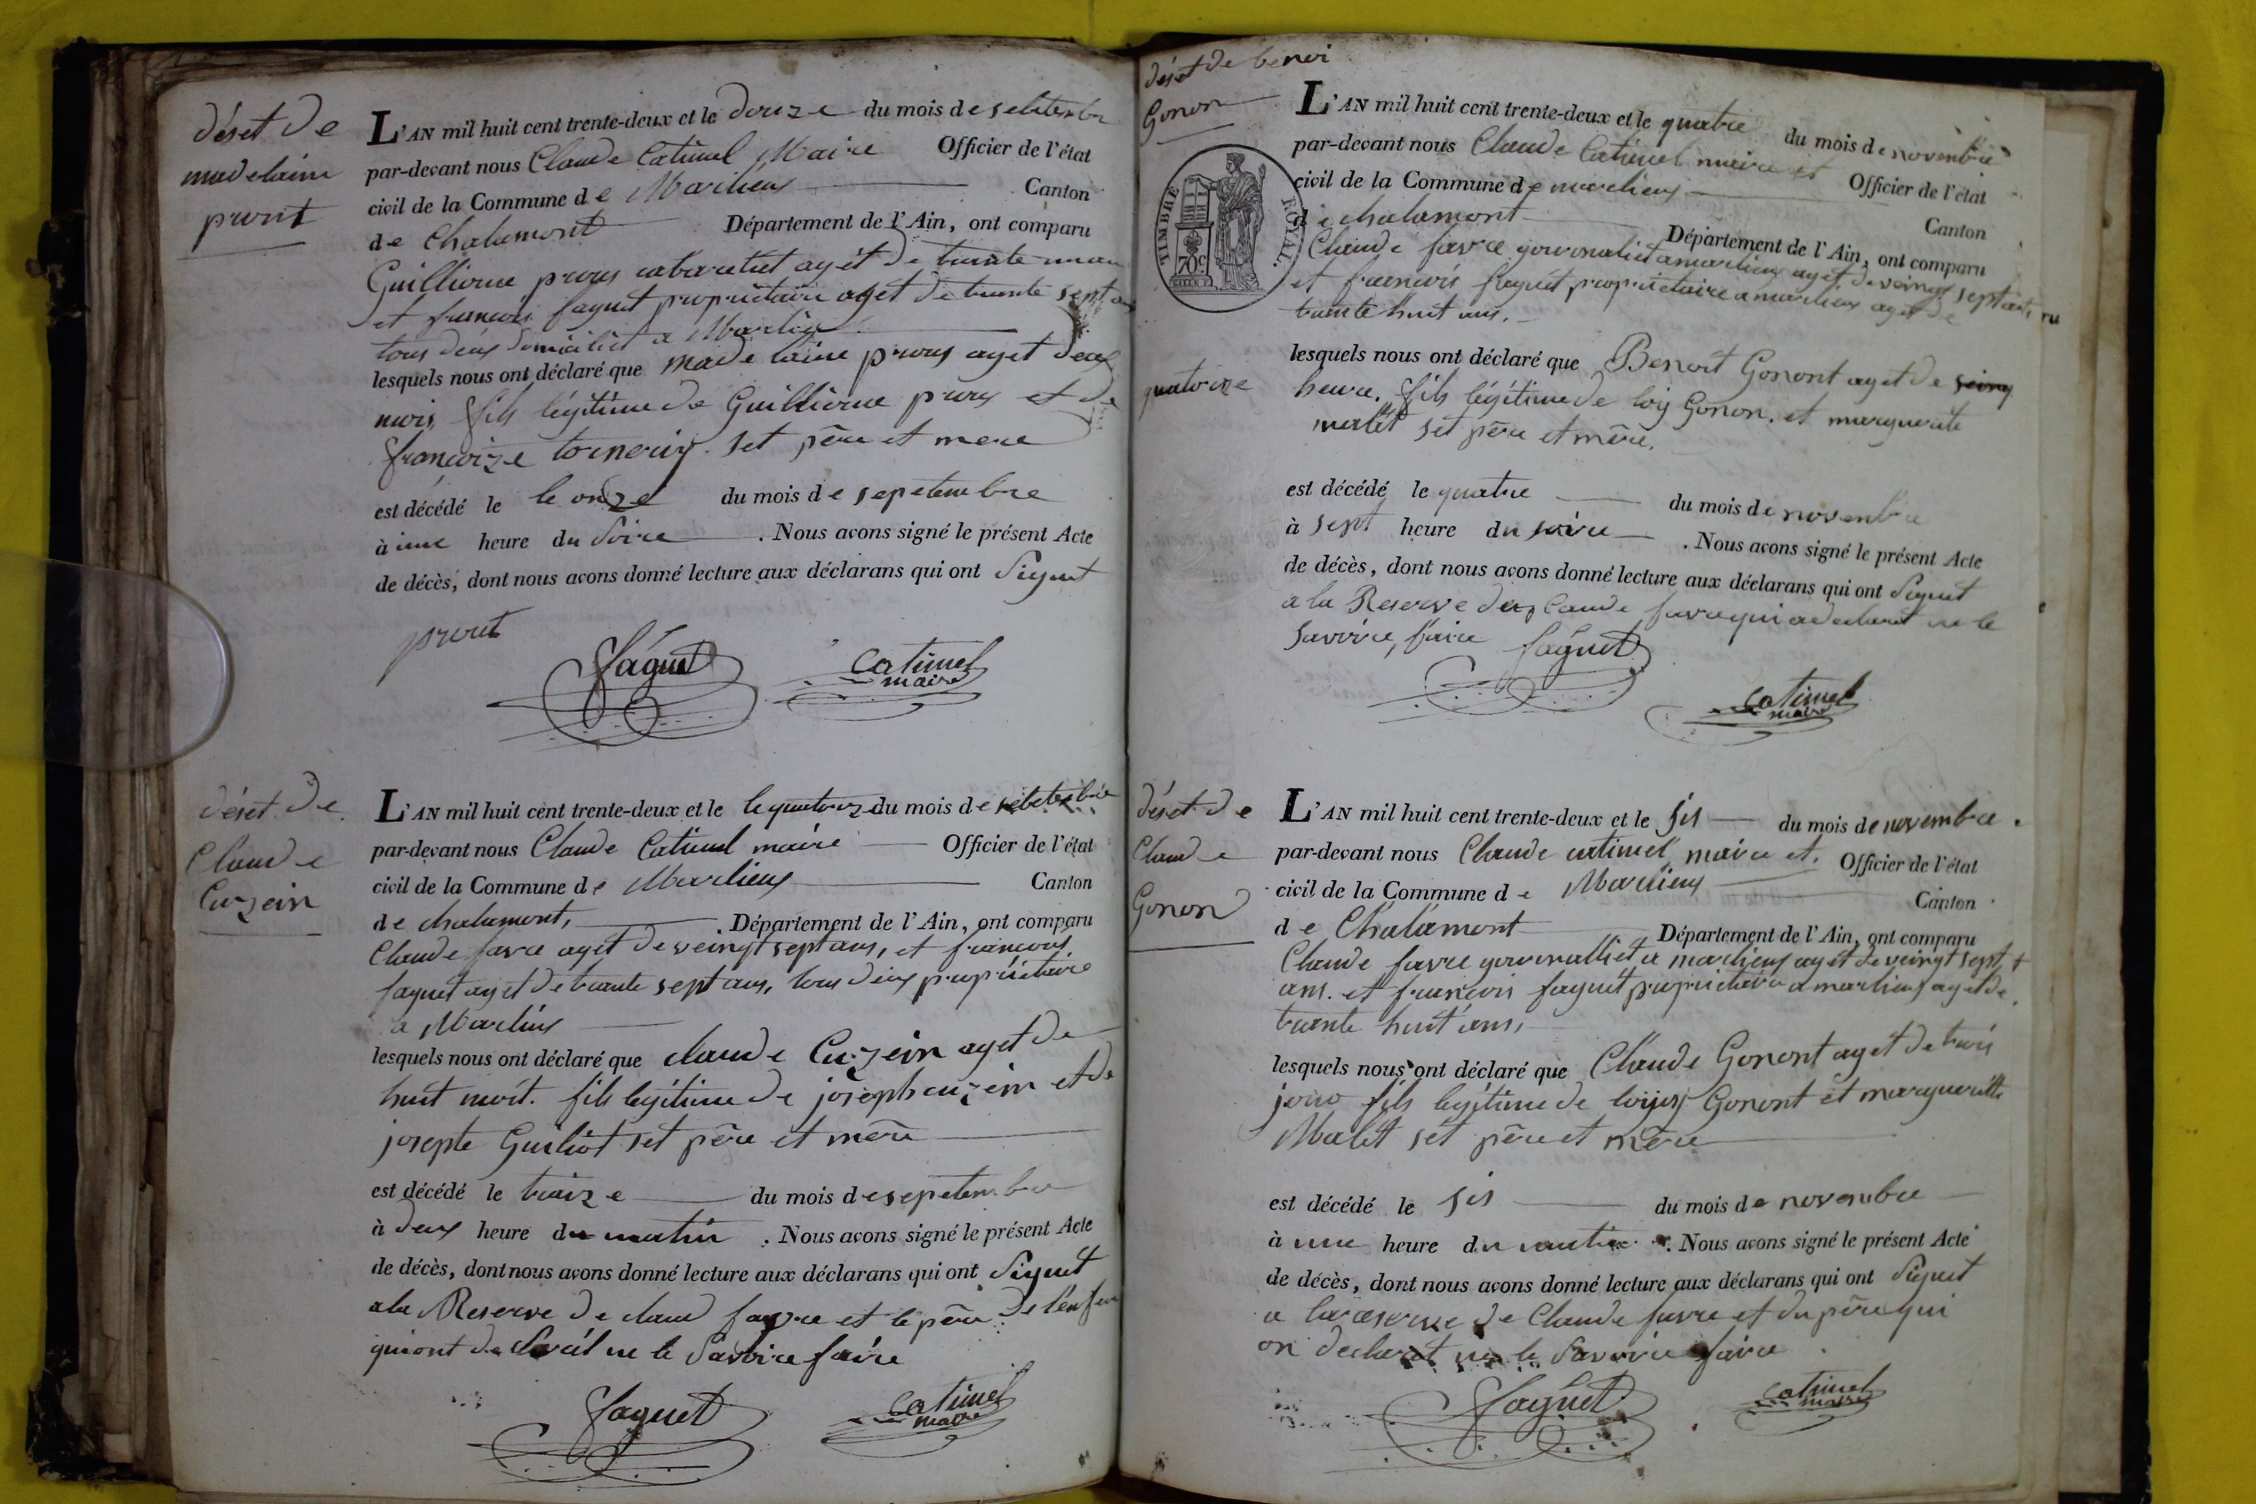 déset de
madelaine
prout
L'AN mil huit cent trente-deux et le douze du mois de sebtembr
par-devant nous Claude Catimel Maire Officier de l'état
civil de la Commune de Marlieux Canton
de Chalamont Département de l'Ain, ont comparu
Guilliome prous cabaretiet agét de trante un an
et francois faguet propriétaire aget de trante sept an
tous deux domiciliet a Marlieux
lesquels nous ont déclaré que madelaine prous aget deux
mois fils légitime de Guilliome prous et de
françoize set père et mere
est décédé le le onze du mois de sepetembre
à une heure du Soire . Nous avons signé le présent Acte
de décès, dont nous avons donné lecture aux déclarans qui ont Signet
prout
faguet
Catimel
maire
déset de
Claude
Cuzein
L'AN mil huit cent trente-deux et le le quatorz du mois de sebtembre
par-devant nous Claude Catimel maire Officier de l'état
civil de la Commune de Marlieux Canton
de chalamont, . Département de l'Ain, ont comparu
Claude favre agét de veingt sept ans, et francois
faguet aget de trante sept ans, tous deux propriétaire
a Marlieux
lesquels nous ont déclaré que claude Cuzein aget de
huit moit. fils legitime de joseph cuzein et de
josepte Guiliot set père et mère
est décédé le traize du mois de sepetembre
à deux heure du matin . Nous avons signé le présent Acte
de décès, dont nous avons donné lecture aux déclarans qui ont Signet
a la Reserve de claud favre et le père de l'enfan
qui ont ne le Savoire faire
faguet
Catimel
maire
déset de benoi
Gonon
TIMBRE ROYAL.
70c
L'AN mil huit cent trente-deux et le quatre du mois de novembre
par-devant nous Claude Catimel maire et Officier de l'état
civil de la Commune de marlieux Canton
de chalamont Département de l'Ain, ont comparu
Claude favre gournaliet a marlieux aget de veingt sept ans,
et francois faguét propriétaire a marlieux aget de
trante huit ans.
lesquels nous ont déclaré que Benoit Gonont aget de seing
quatorze
heure. fils légitime de loij Gonon. et marguerite
malet set père et mère.
est décédé le quatre du mois de novembre
à sept heure du soire . Nous avons signé le présent Acte
de décès, dont nous avons donné lecture aux déclarans qui ont Signet
a la Reserve de claude favre qui a declaret ne le
Savoire faire
faguet
Catimel
maire
déset de
Claude
Gonon
L'AN mil huit cent trente-deux et le sis du mois de novembre.
par-devant nous Claude catimel maire et. Officier de l'état
civil de la Commune de Marlieux Canton
de Chalamont Département de l'Ain, ont comparu
Claude favre gournalliet a marlieux aget de veingt sept
ans. et francois faguét propriétaire a marlieux aget de
trante huit ans,
lesquels nous ont déclaré que Claude Gonont aget de trois
jour fils legitime de Gonont et margueritte
Malet sét père et mère
est décédé le sis du mois de novembre
à une heure du matin . Nous avons signé le présent Acte
de décès, dont nous avons donné lecture aux déclarans qui ont Signet
a la reserve de Claude favre et du père qui
on declaret ne le Savoire faire
faguet
Catimel
maire